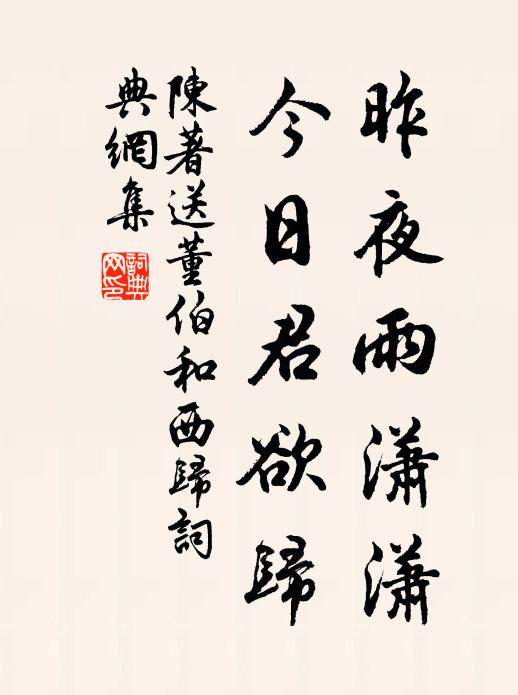 昨夜雨瀟瀟
今日君欲歸
陳著送董伯和西歸詞
典網集
詞典網印